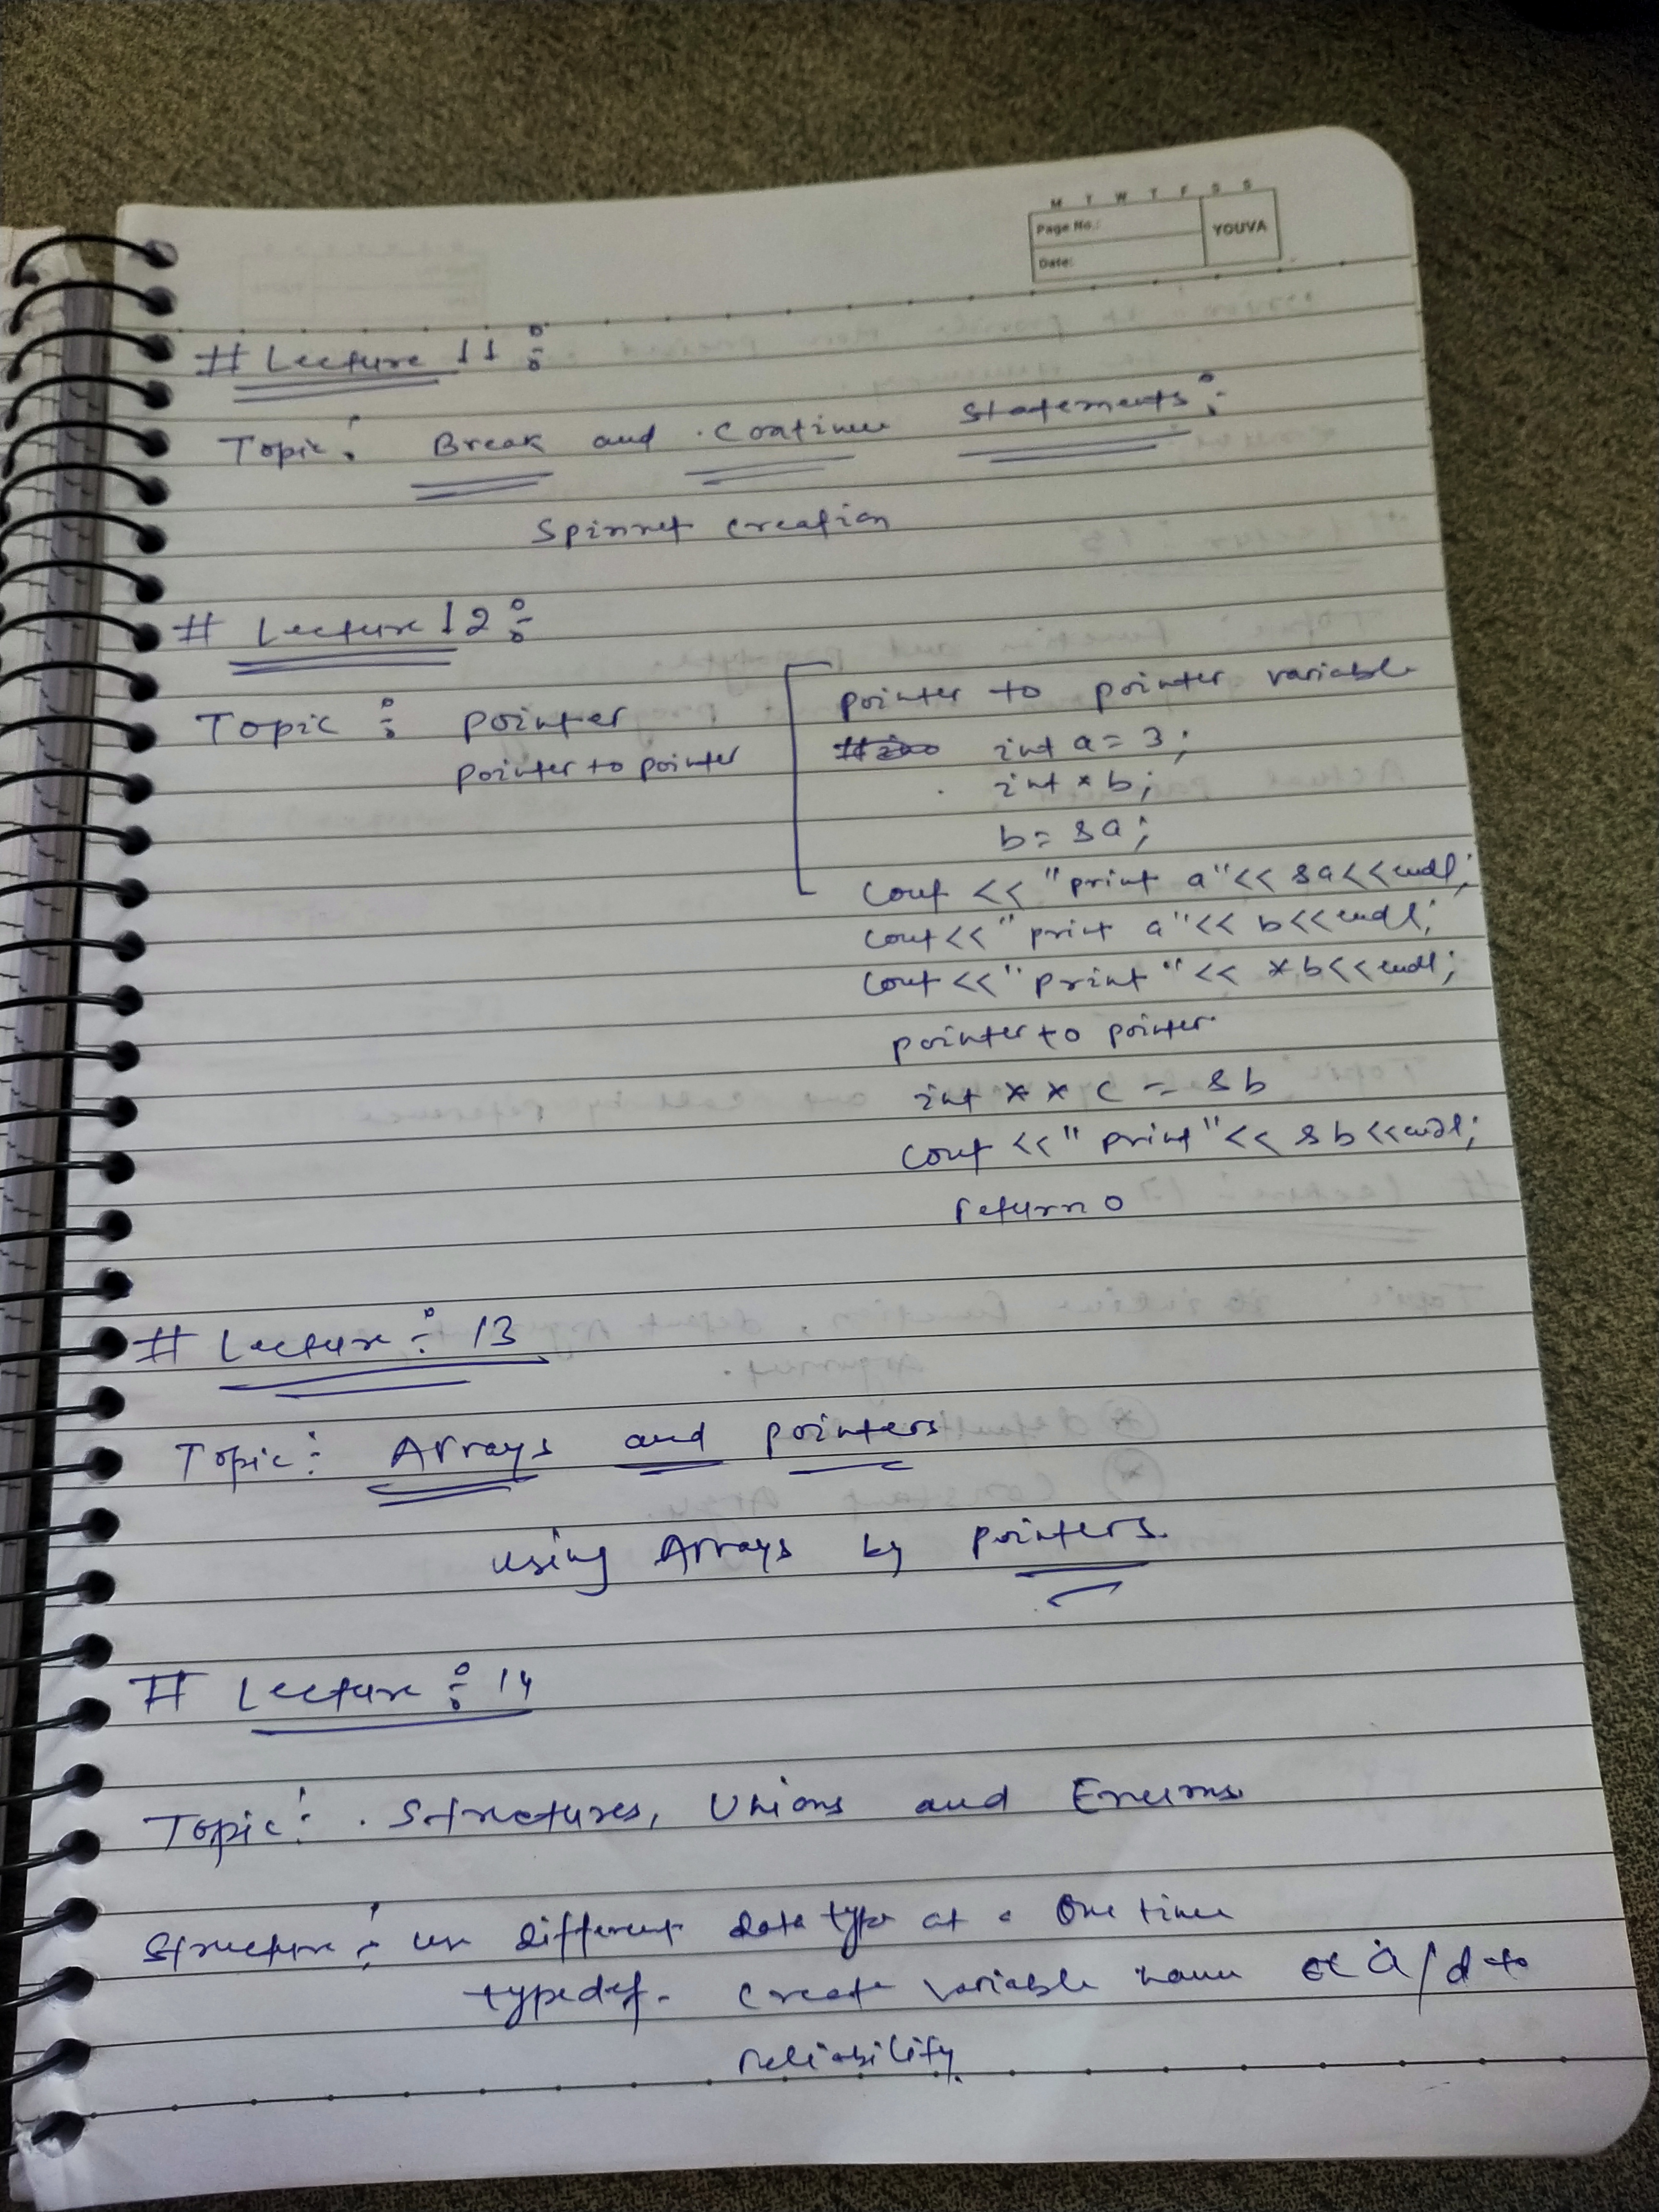 M T W T F S S
Page No.:
YOUVA
Date:
# Lecture 11 :-
Topic: Break and Continue Statements:-
Spinnet creation
# Lecture 12 :-
Topic :- pointer
pointer to pointer
pointer to pointer variable
int a = 3;
int * b;
b = &a;
cout << "print a"<< &a<<endl;
cout<<" print a"<< b<<endl;
cout <<" print "<< *b<<endl;
pointer to pointer
int * * c = &b
cout <<" print"<< &b<<endl;
return 0
# Lecture :- 13
Topic :- Arrays and pointers
using Arrays by pointers.
# Lecture :- 14
Topic :- Structures, Unions and Enums
Structure :- use different data type at a One time
typedef - create variable name
reliability.